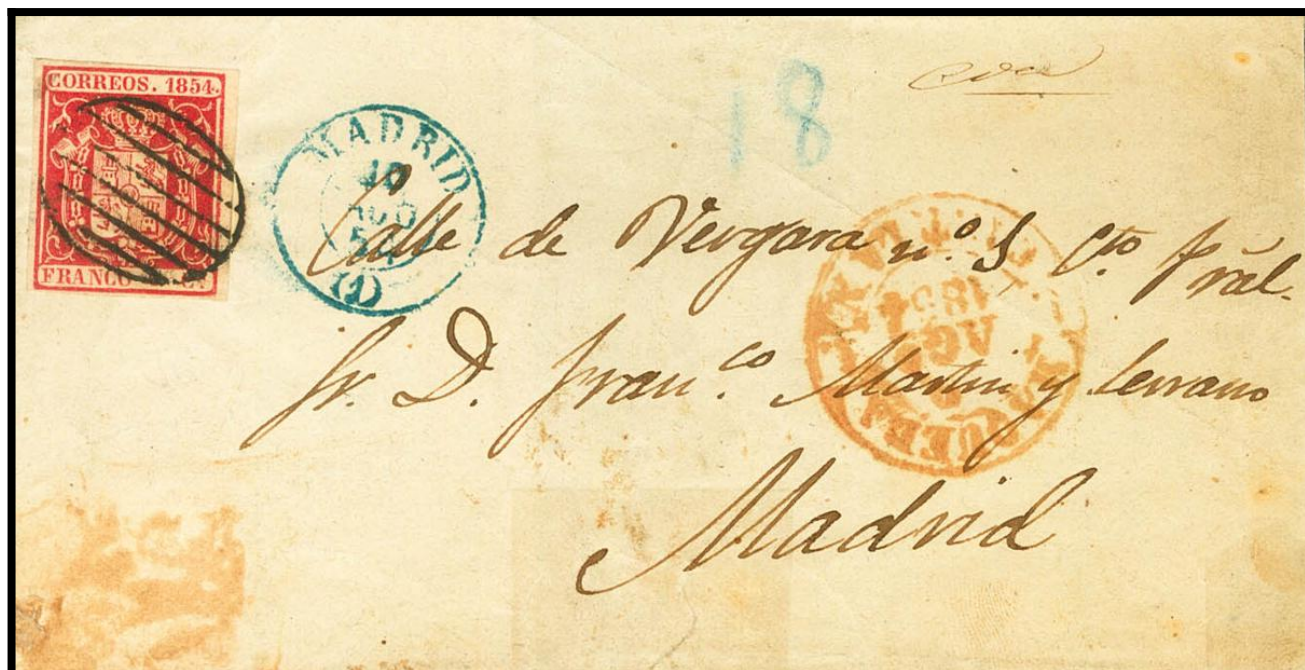 CORREOS. 1854.
FRANCO
18
MADRID
AGO
(1)
Calle de Vergara nº. 5 Cto. pral.
Sr. D. Franco. Martin y Serrano
1854
AG
Madrid